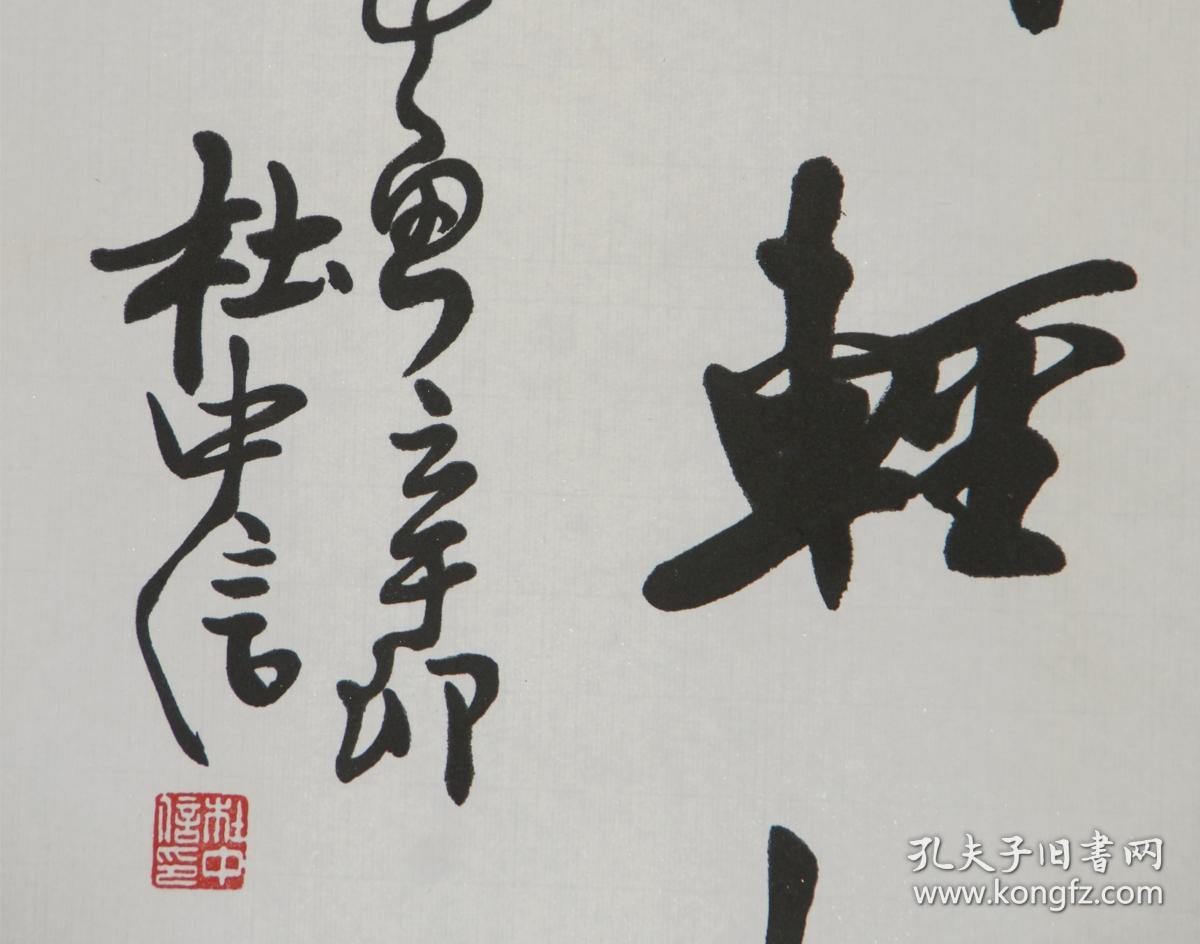 輕
辛卯
杜中信
杜中信印
孔夫子旧書网
www.kongfz.com